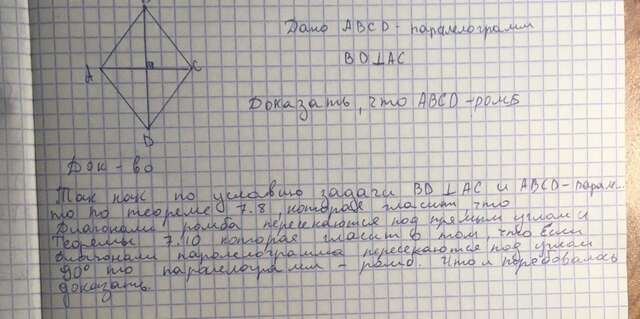 B
Дано ABCD - паралелограмм
A
C
BD⊥AC
Доказать, что ABCD - ромб
D
Док-во
Так как по условию задачи BD⊥AC и ABCD-парал..
то по теореме 7.8, которая гласит что
диагонали ромба пересекаются под прямым углом и
теоремы 7.10 которая гласит о том, что если
диагонали паралелограмма пересекаются под углом
90° то паралелограмм - ромб. Что и требовалось
доказать.